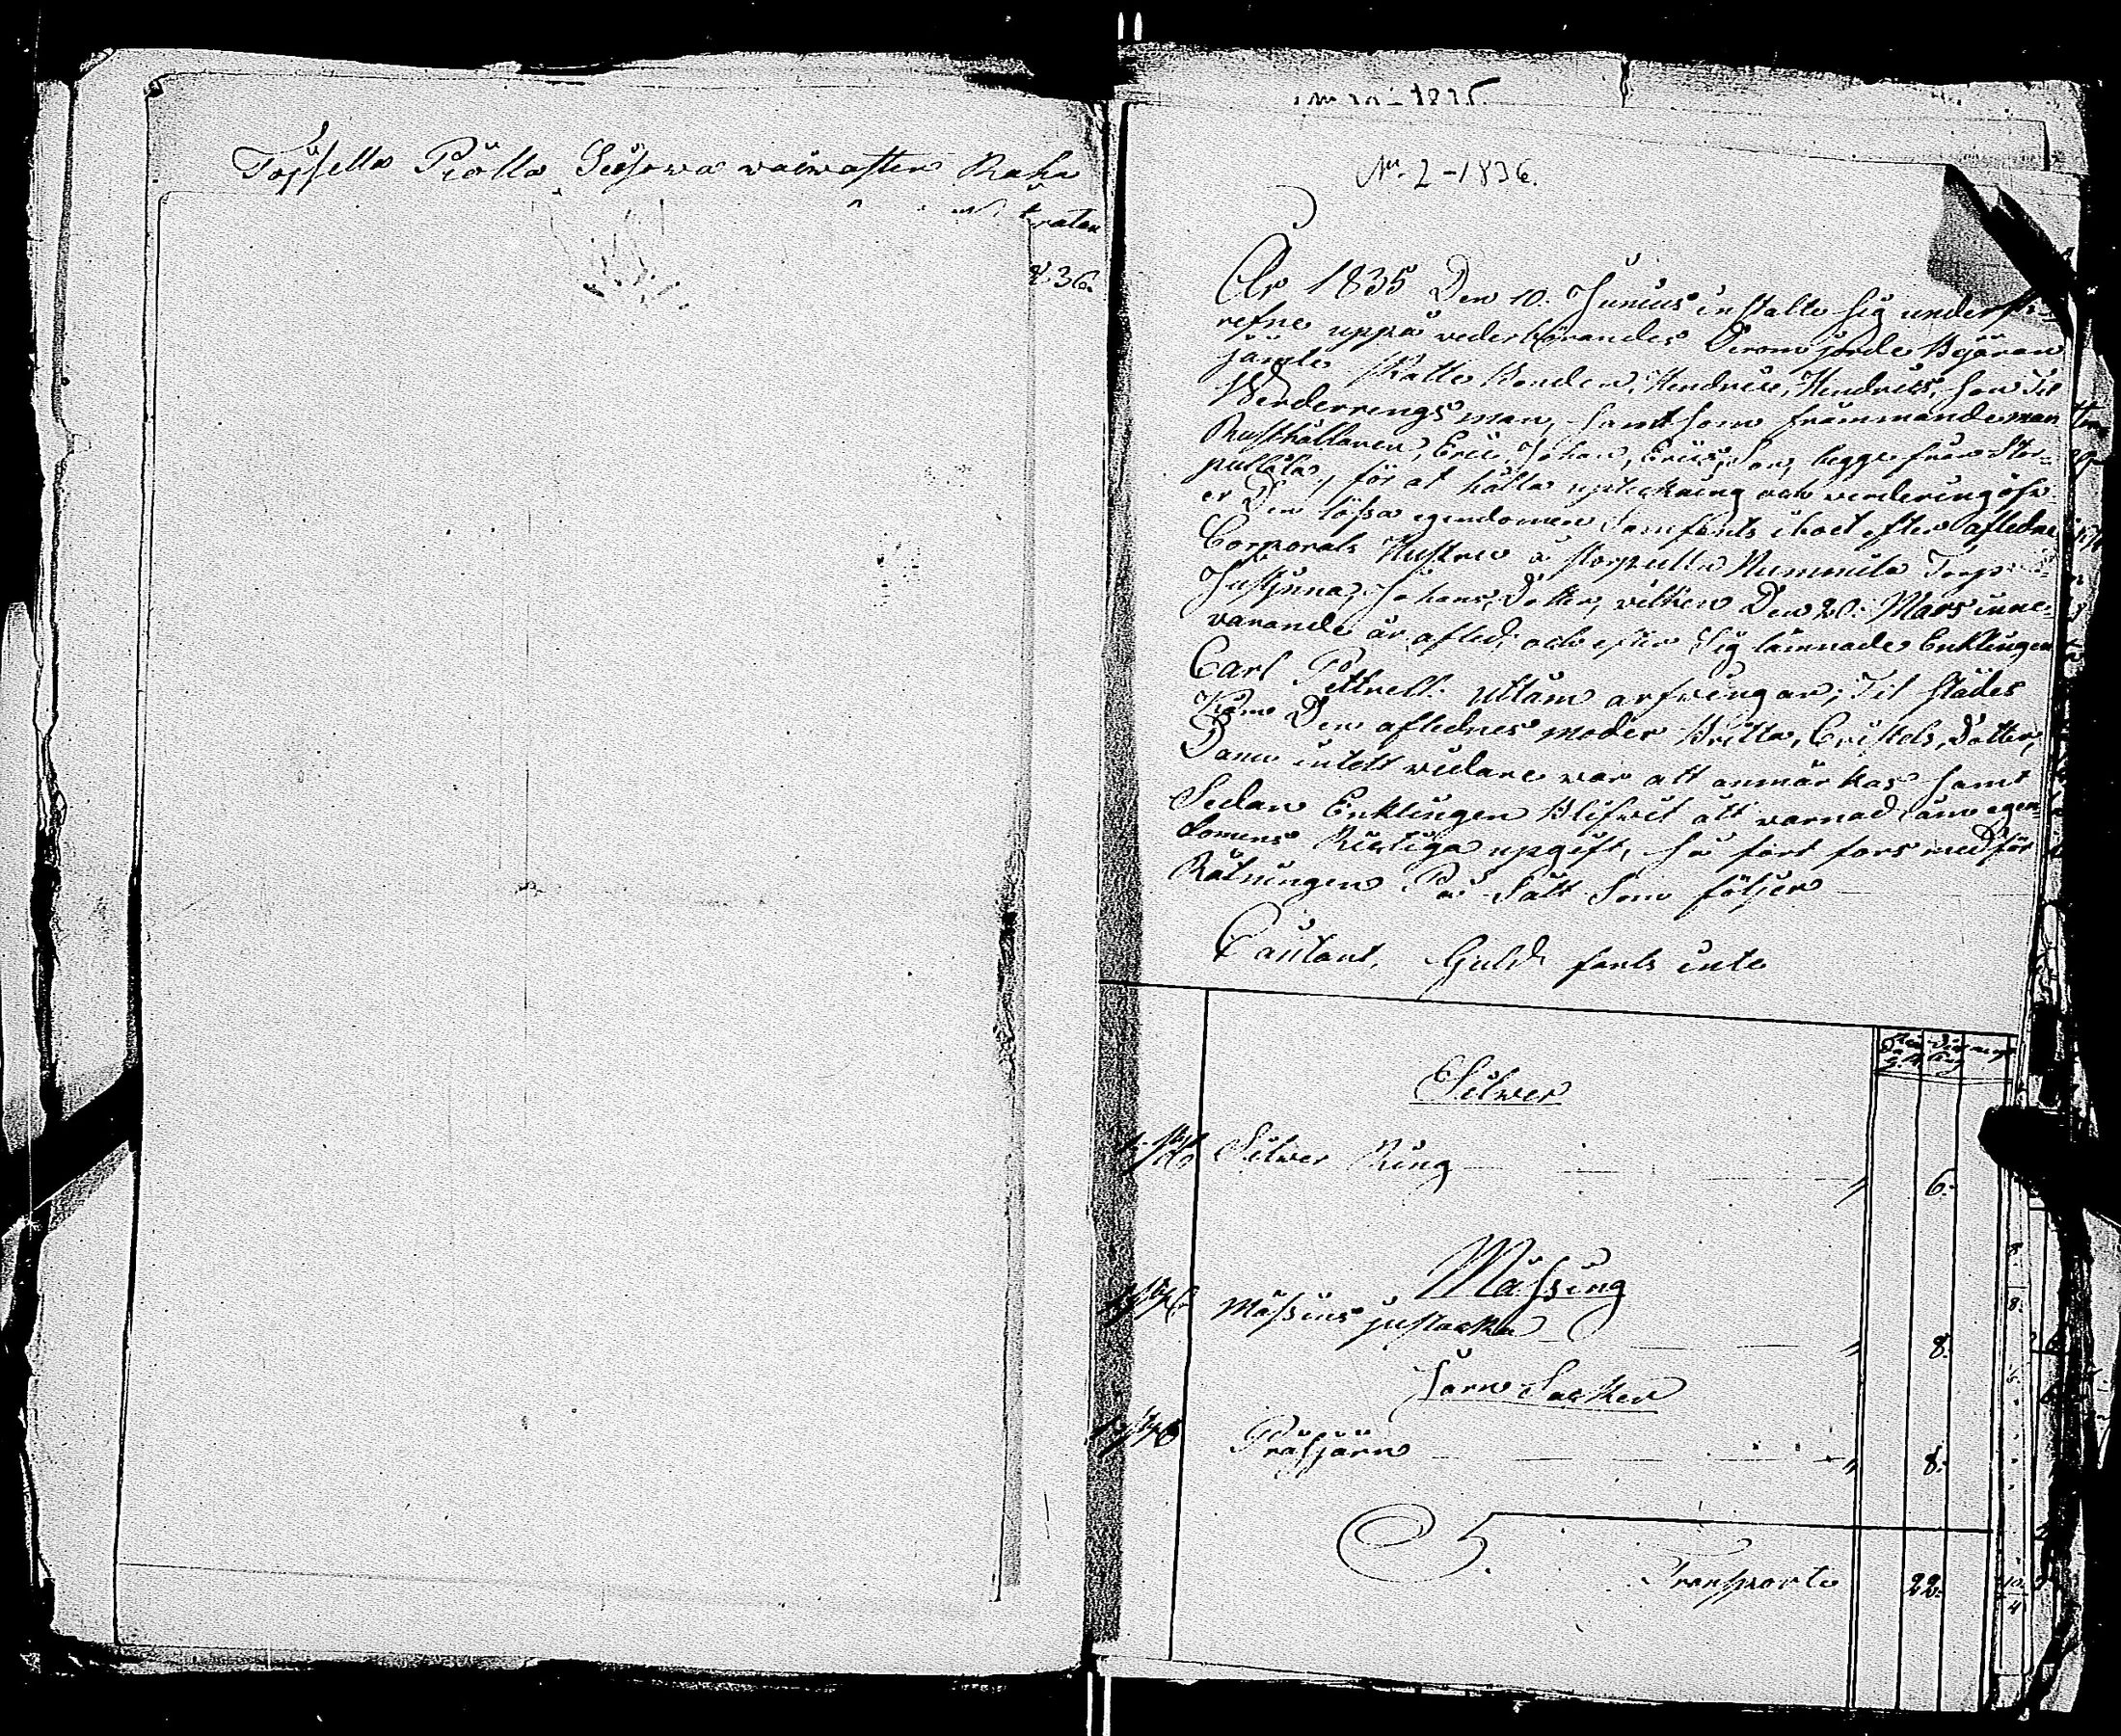 Töysellä Piölla Seisowa waiwasten Raha
raten
836.
1835.
N. 2-1836.
År 1835 Den 10. Junius instalte sig undersk-
refne uppå wederbörandes Derom gjorde Begäran
jämte Skatte Bonden, Hendric, Hindrics, son Til
Werderrings man, samt som främmande man
Rusthållaren, Eric, Johan, Erics, Son, begge från Stor-
pullala, för at hålla upteckning och verdering öfw-
er Den lössa egendomen Som fants i boet efter afledne
Corporals Hustrun å storpulla Nummila Torp
Justinna, Johans, Dotter, vilken Den 20. Mars inne-
varande år afled, och efter Sig lämnade Enklingen
Carl Pettrell. uttam arfvingar; Til städes
Kom Den aflednes moder Britta, Cristels, Dotter,
Damn intett widare war att anmärkas samt
Sedan Enklingen Blifwit att warnad äm egen-
domens Ricktiga upgift, så fort fors med för
Rätningen På Sätt Som följer
Contant, Guld fants inte
Silwer
1 st Silwer Ring 6.
Mässing
1 st Mässins justacka 8.
Järn Sacker
1 st Präsjärn 8.
Transporte 22.